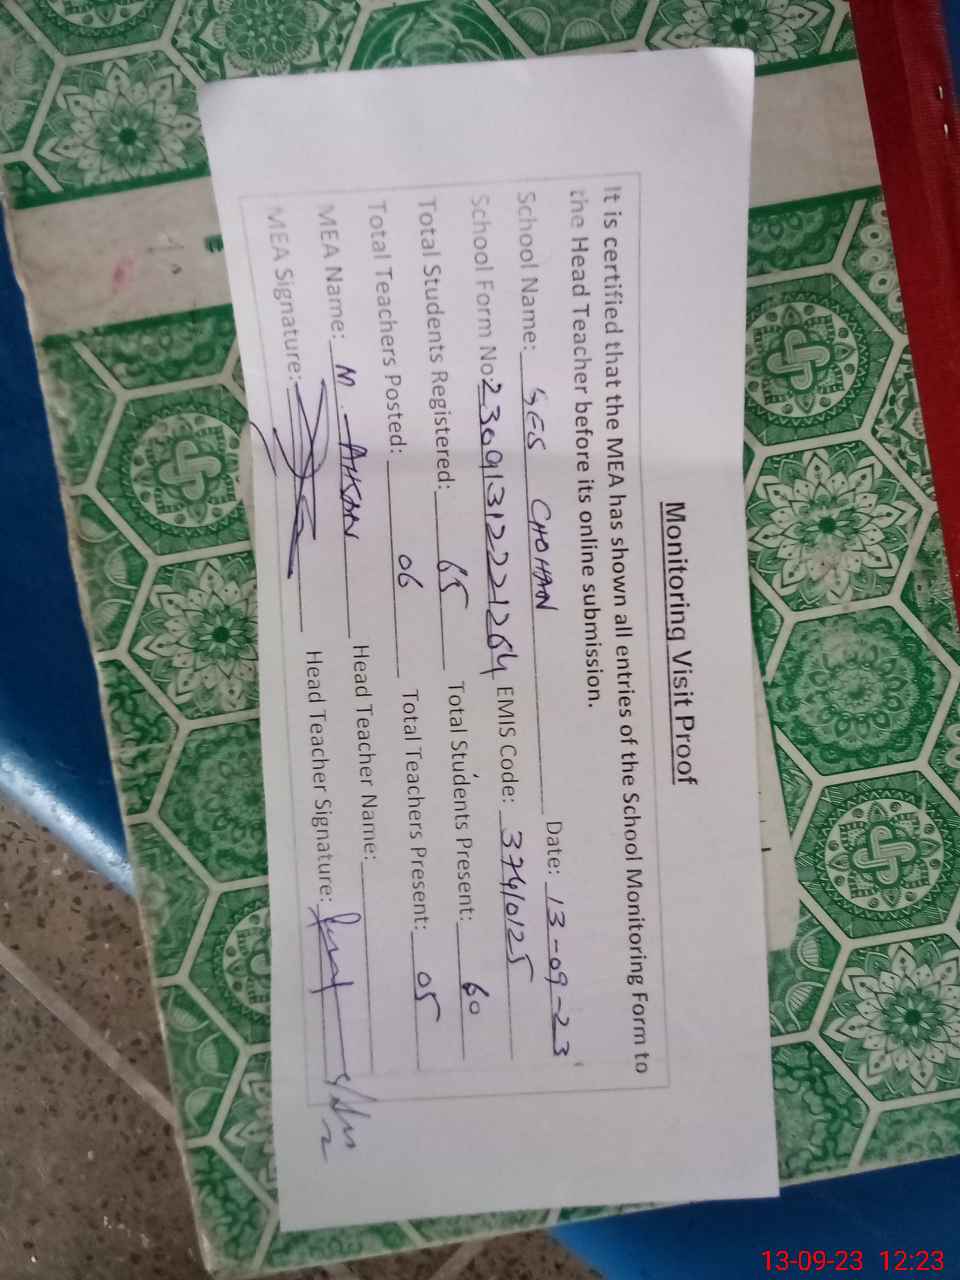 Monitoring Visit Proof
It is certified that the MEA has shown all entries of the School Monitoring Form to
the Head Teacher before its online submission.
School Name: GES CHOHAN Date: 13-09-23
School Form No: 23091312221264 EMIS Code: 37410125
Total Students Registered: 65 Total Students Present: 60
Total Teachers Posted: 06 Total Teachers Present: 05
MEA Name: M. AHSAN Head Teacher Name:
MEA Signature: Head Teacher Signature:
13-09-23 12:23